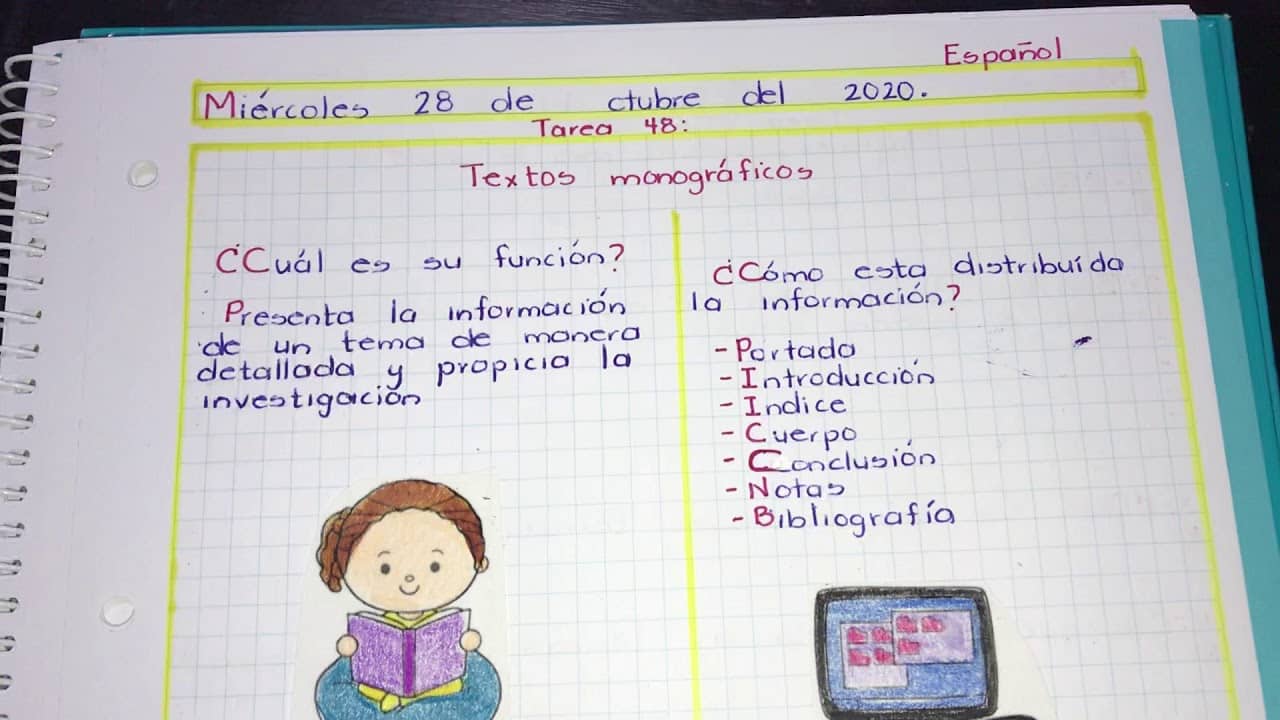 Español
Miércoles 28 de ctubre del 2020.
Tarea 48:
Textos monográficos
¿Cuál es su función?
Presenta la información
de un tema de manera
detallada y propicia la
investigación
¿Cómo esta distribuída
la información?
-Portada
-Introducción
-Indice
-Cuerpo
-Conclusión
-Notas
-Bibliografía